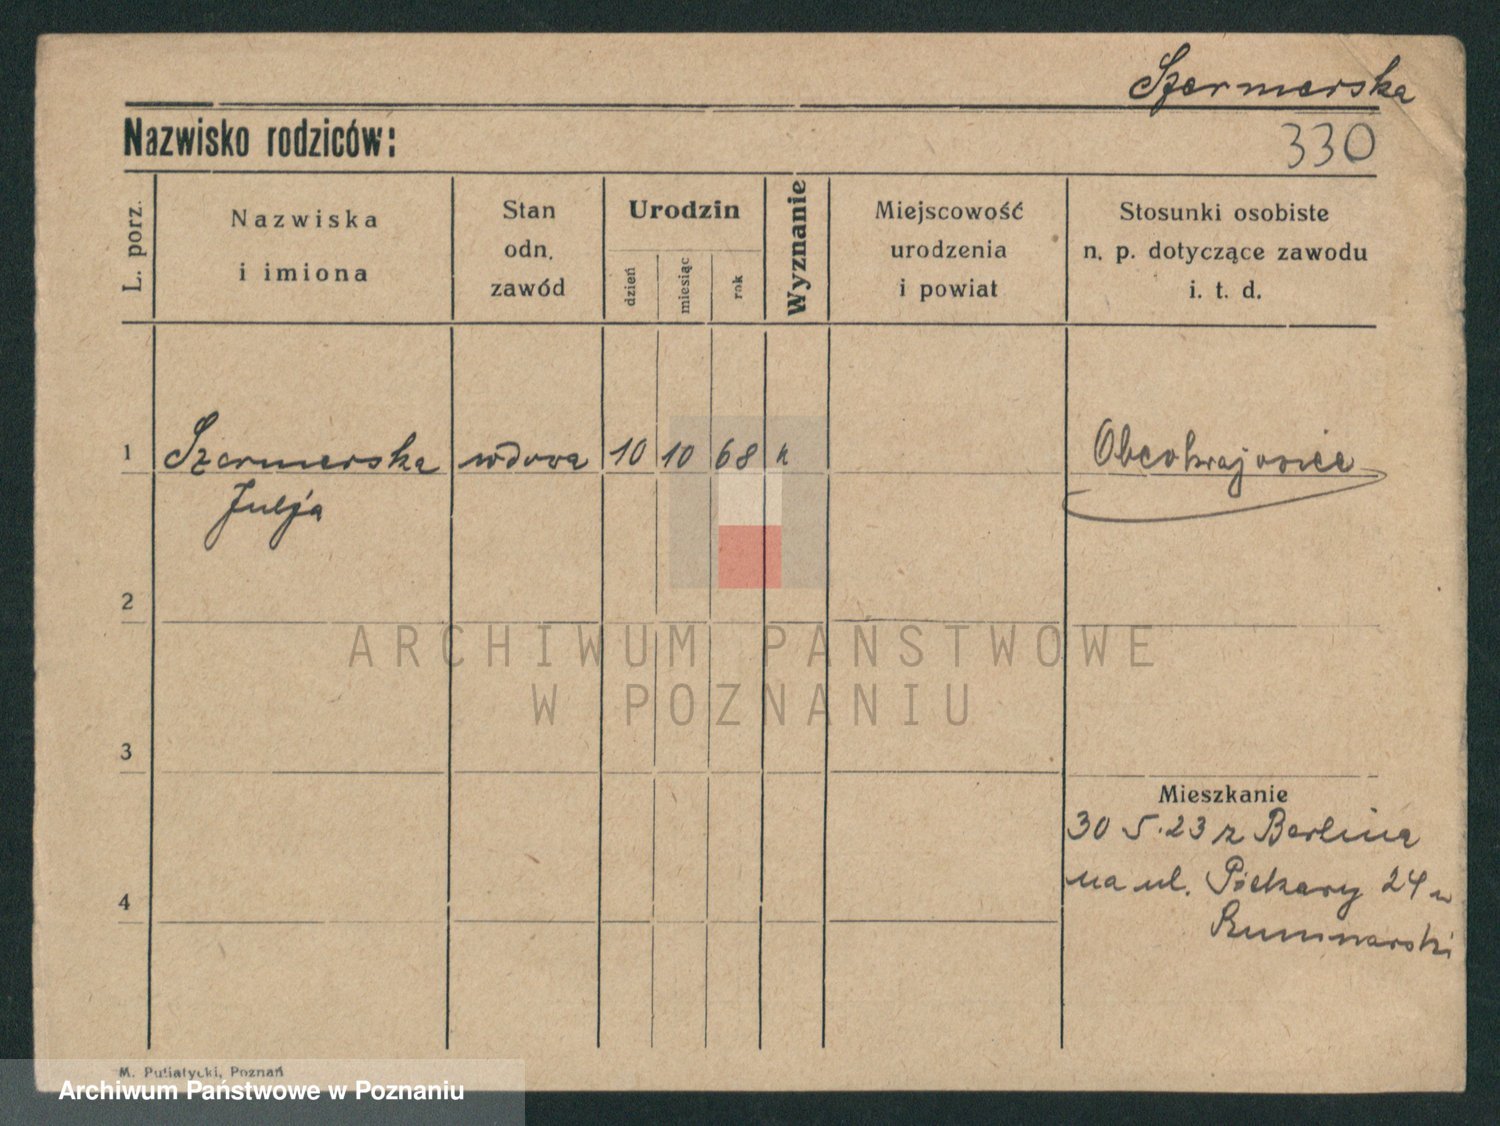 Szermerska
Nazwisko rodziców:
330
L. porz.
Nazwiska
i imiona
Stan
odn.
zawód
Urodzin
dzień
miesiąc
rok
Wyznanie
Miejscowość
urodzenia
i powiat
Stosunki osobiste
n. p. dotyczące zawodu
i. t. d.
1 Szermerska wdowa 10 10 68 k Obcokrajowiec
Julja
2
ARCHIWUM PAŃSTWOWE
W POZNANIU
3
Mieszkanie
30 5.23 z Berlina
4 na ul. Piekary 24
M. Putiatycki, Poznań
Archiwum Państwowe w Poznaniu